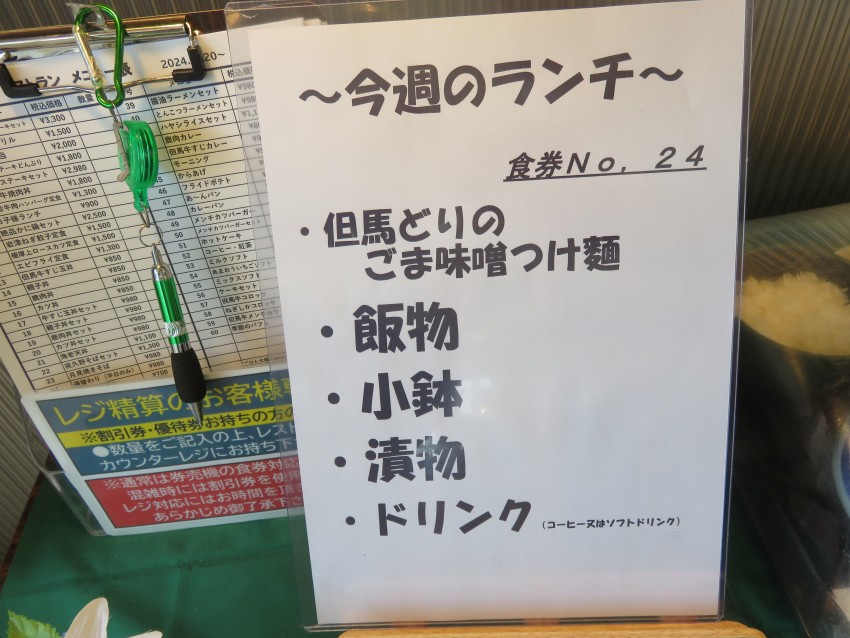 ~今週のランチ~
食券No, 24
・但馬どりの
ごま味噌つけ麺
・飯物
・小鉢
・漬物
・ドリンク(コーヒー又はソフトドリンク)
2024.
20~
トラン メニュー表
税込価格 数量
¥3,300
¥1,500
¥2,000
¥1,800
¥2,980
¥1,800
¥1,300
¥900
¥2,500
¥1,500
39 醤油ラーメンセット
とんこつラーメンセット
ハヤシライスセット
鹿肉カレー
但馬牛すじカレー
モーニング
45 からあげ
46 フライドポテト
47 あーんパン
48 カレーパン
49 メンチカツバーガー
50 メンチカツバーガーセット
51 ホットケーキ
52 コーヒー・紅茶
53 ミルクソフト
54 あまおういちごソフト
55 ミックスソフト
56 ケーキセット
57 但馬牛コロッケ
58 ねぎしかコロッケ
59 但馬牛メンチカツ
60 季節のパフェ
14 但馬牛すじ玉丼
15 親子丼
16 鹿肉丼
17 カツ丼
18 牛すじ玉丼セット
19 親子丼セット
20 鹿肉丼セット
21 カツ丼セット
22 海老天丼
23
月見焼きそば
レジ精算のお客様
※割引券・優待券お持ちの方の
●数量をご記入の上、レスト
カウンターレジにお持ち下
※通常は券売機の食券対応
混雑時には割引券を使用
レジ対応にはお時間を頂
あらかじめ御了承下さ